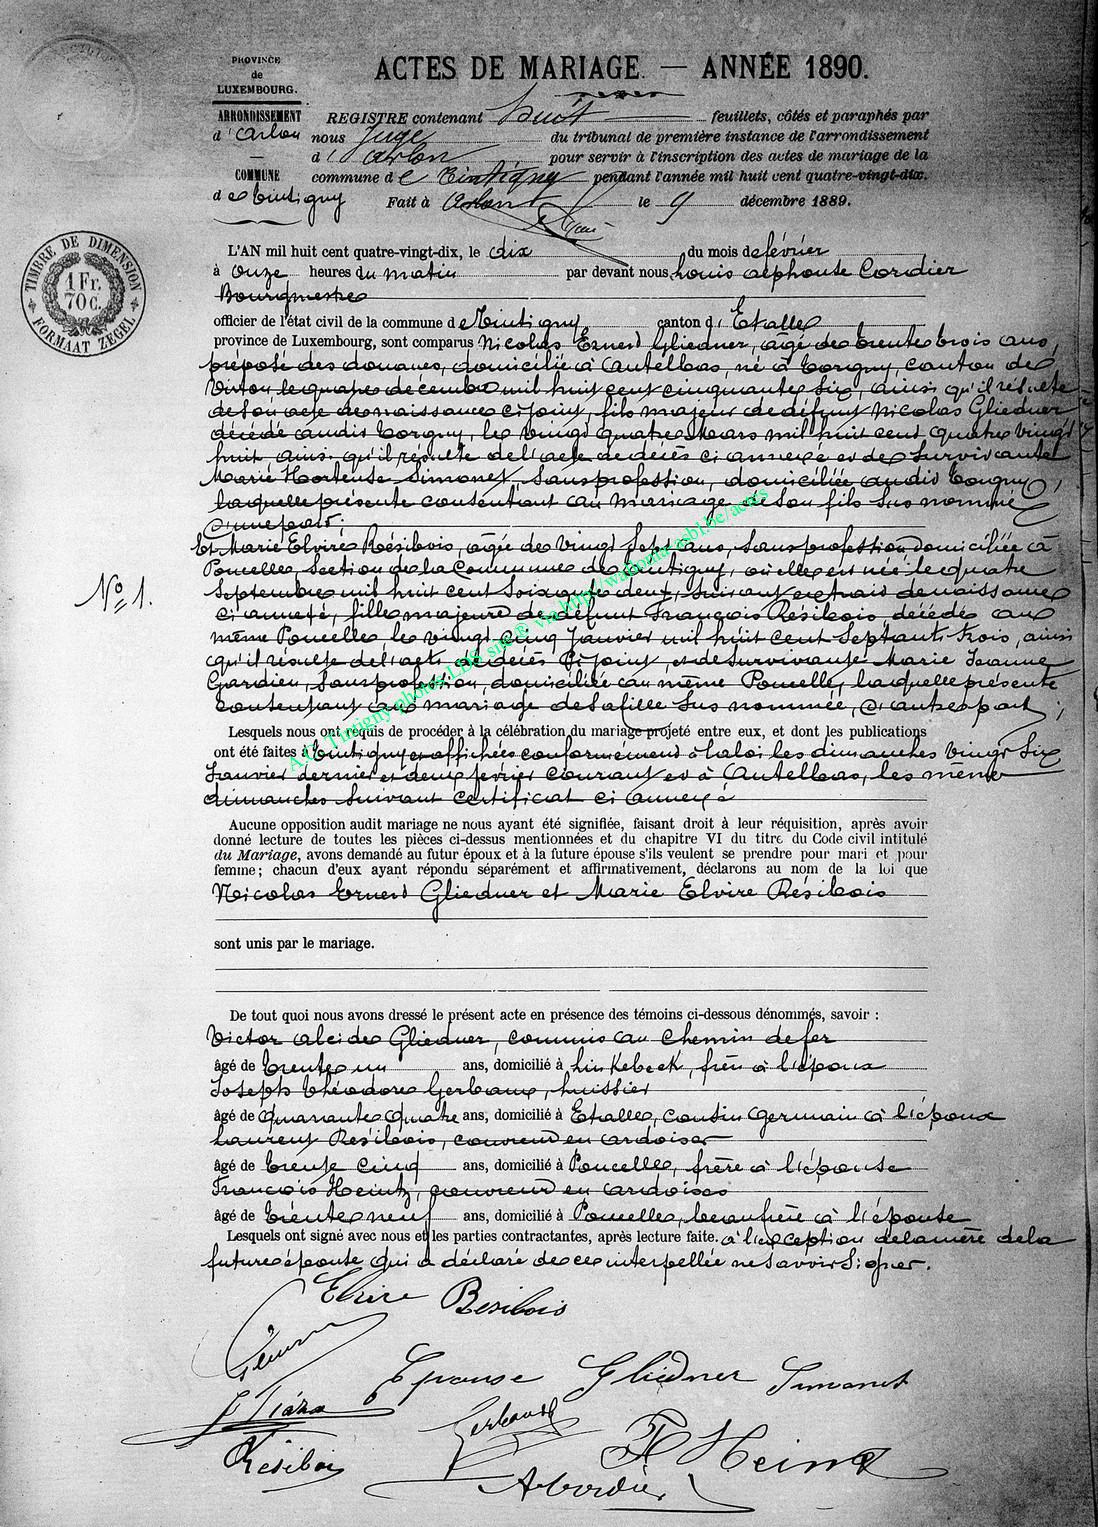 PROVINCE
de
LUXEMBOURG.
ARRONDISSEMENT
d'Arlon
COMMUNE
de Tintigny
ACTES DE MARIAGE. — ANNÉE 1890.
REGISTRE contenant huit feuillets, côtés et paraphés par
nous Juge du tribunal de première instance de l'arrondissement
d'Arlon pour servir à l'inscription des actes de mariage de la
commune de Tintigny pendant l'année mil huit cent quatre-vingt-dix.
Fait à Arlon le 9 décembre 1889.
TIMBRE DE DIMENSION
1 Fr.
70 c.
FORMAAT ZEGEL
L'AN mil huit cent quatre-vingt-dix, le dix du mois de février
à onze heures du matin par devant nous, Louis Alphonse Cordier
Bourgmestre
officier de l'état civil de la commune de Tintigny canton d'Etalle
province de Luxembourg, sont comparus Nicolas Ernest Gliedner, âgé de trente trois ans,
préposé des douanes, domicilié à Autelbas, né à Torgny, canton de
Virton, le quatre décembre mil huit cent cinquante six, ainsi qu'il résulte
de son acte de naissance ci joint, fils majeur de défunt Nicolas Gliedner
décédé audit Torgny, le vingt quatre Mars mil huit cent quatre vingt
huit ainsi qu'il résulte de l'acte de décès ci annexé et de survivante
Marie Hortense Simonet, sans profession, domiciliée audit Torgny,
laquelle présente consentant au mariage de son fils sus nommé
d'une part;
Et Marie Elvire Résibois, âgée de vingt sept ans, sans profession domiciliée à
Poncelle, section de la Commune de Tintigny, où elle est née le quatre
Septembre mil huit cent soixante deux, suivant extrait de naissance
ci annexé, fille majeure de défunt François Résibois, décédé au
même Poncelle le vingt cinq Janvier mil huit cent septante trois, ainsi
qu'il résulte de l'acte de décès ci joint, et de survivante Marie Jeanne
Gardien, sans profession, domiciliée au même Poncelle, laquelle présente
consentant au mariage de sa fille sus nommée, d'autre part;
N° 1.
Lesquels nous ont requis de procéder à la célébration du mariage projeté entre eux, et dont les publications
ont été faites à Tintigny et affichées conformément à la loi les dimanches vingt six
Janvier dernier et deux février courant et à Autelbas, les même
dimanches suivant certificat ci annexé
Aucune opposition audit mariage ne nous ayant été signifiée, faisant droit à leur réquisition, après avoir
donné lecture de toutes les pièces ci-dessus mentionnées et du chapitre VI du titre du Code civil intitulé
du Mariage, avons demandé au futur époux et à la future épouse s'ils veulent se prendre pour mari et pour
femme; chacun d'eux ayant répondu séparément et affirmativement, déclarons au nom de la loi que
Nicolas Ernest Gliedner et Marie Elvire Résibois
sont unis par le mariage.
De tout quoi nous avons dressé le présent acte en présence des témoins ci-dessous dénommés, savoir :
Victor Alcide Gliedner, commis au chemin de fer
âgé de trente un ans, domicilié à Linkebeek, frère à l'époux
Joseph Théodore Gerbaux, huissier
âgé de quarante quatre ans, domicilié à Etalle, cousin germain à l'époux
Laurent Résibois, couvreur en ardoises
âgé de trente cinq ans, domicilié à Poncelle, frère à l'épouse
François Heintz, couvreur en ardoises
âgé de trente neuf ans, domicilié à Poncelle, beaufrère à l'épouse
Lesquels ont signé avec nous et les parties contractantes, après lecture faite. à l'exception de la mère de la
future épouse qui a déclaré de ce interpellée ne savoir signer.
Elvire Resibois
Epouse Gliedner Simonet
Gerbaux
Résibois
F Heintz
A Cordier
A.C. Tintigny photos LDS site© via http://wallonia-asbl.be/actes